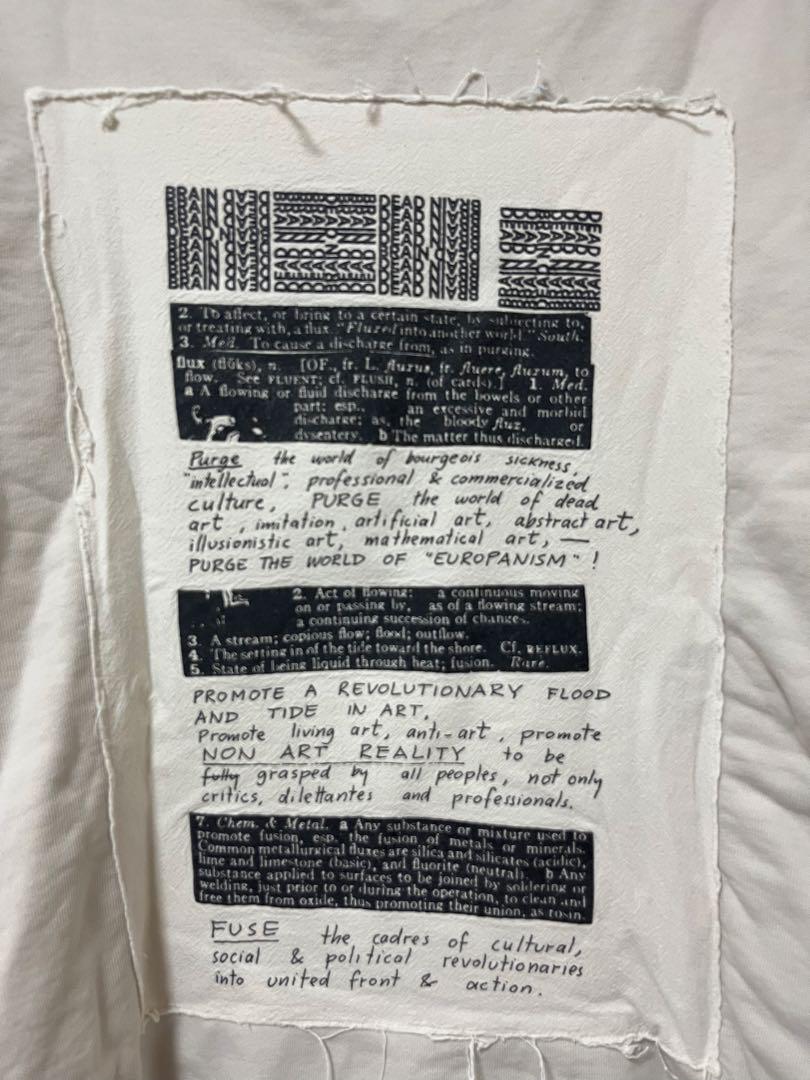 BRAIN DEAD
2. To affect, or bring to a certain state, by subjecting to,
or treating with, a flux. "Fluxed into another world." South.
3. Med. To cause a discharge from, as in purging.
flux (flŭks), n. [OF., fr. L. fluxus, fr. fluere, fluxum, to
flow. See FLUENT; cf. FLUSH, n. (of cards).] 1. Med.
a A flowing or fluid discharge from the bowels or other
part: esp., an excessive and morbid
discharge; as, the bloody flux, or
dysentery. b The matter thus discharged.
Purge the world of bourgeois sickness,
"intellectual", professional & commercialized
culture, PURGE the world of dead
art, imitation, artificial art, abstract art,
illusionistic art, mathematical art, —
PURGE THE WORLD OF "EUROPANISM"!
2. Act of flowing: a continuous moving
on or passing by, as of a flowing stream;
a continuing succession of changes.
3. A stream; copious flow; flood; outflow.
4. The setting in of the tide toward the shore. Cf. REFLUX.
5. State of being liquid through heat; fusion. Rare.
PROMOTE A REVOLUTIONARY FLOOD
AND TIDE IN ART,
Promote living art, anti-art, promote
NON ART REALITY to be
fully grasped by all peoples, not only
critics, dilettantes and professionals.
7. Chem. & Metal. a Any substance or mixture used to
promote fusion, esp. the fusion of metals or minerals.
Common metallurgical fluxes are silica and silicates (acidic),
lime and limestone (basic), and fluorite (neutral). b Any
substance applied to surfaces to be joined by soldering or
welding, just prior to or during the operation, to clean and
free them from oxide, thus promoting their union, as rosin.
FUSE the cadres of cultural,
social & political revolutionaries
into united front & action.